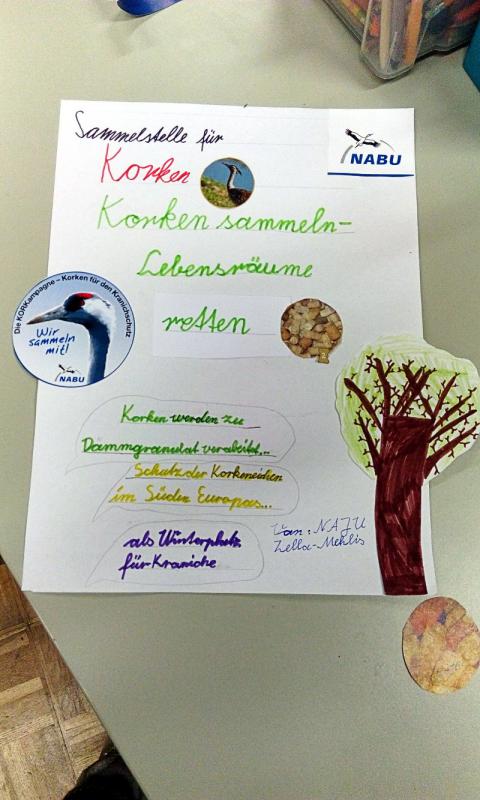 Sammelstelle für
NABU
Korken
Korken sammeln-
Lebensräume
retten
Die KORKampagne – Korken für den Kranichschutz
Wir
sammeln
mit!
NABU
Korken werden zu
Dämmgranulat verabeitet...
Schutz der Korkeneichen
im Süden Europas...
als Winterplatz
für Kraniche
NAJU
Zella-Mehlis